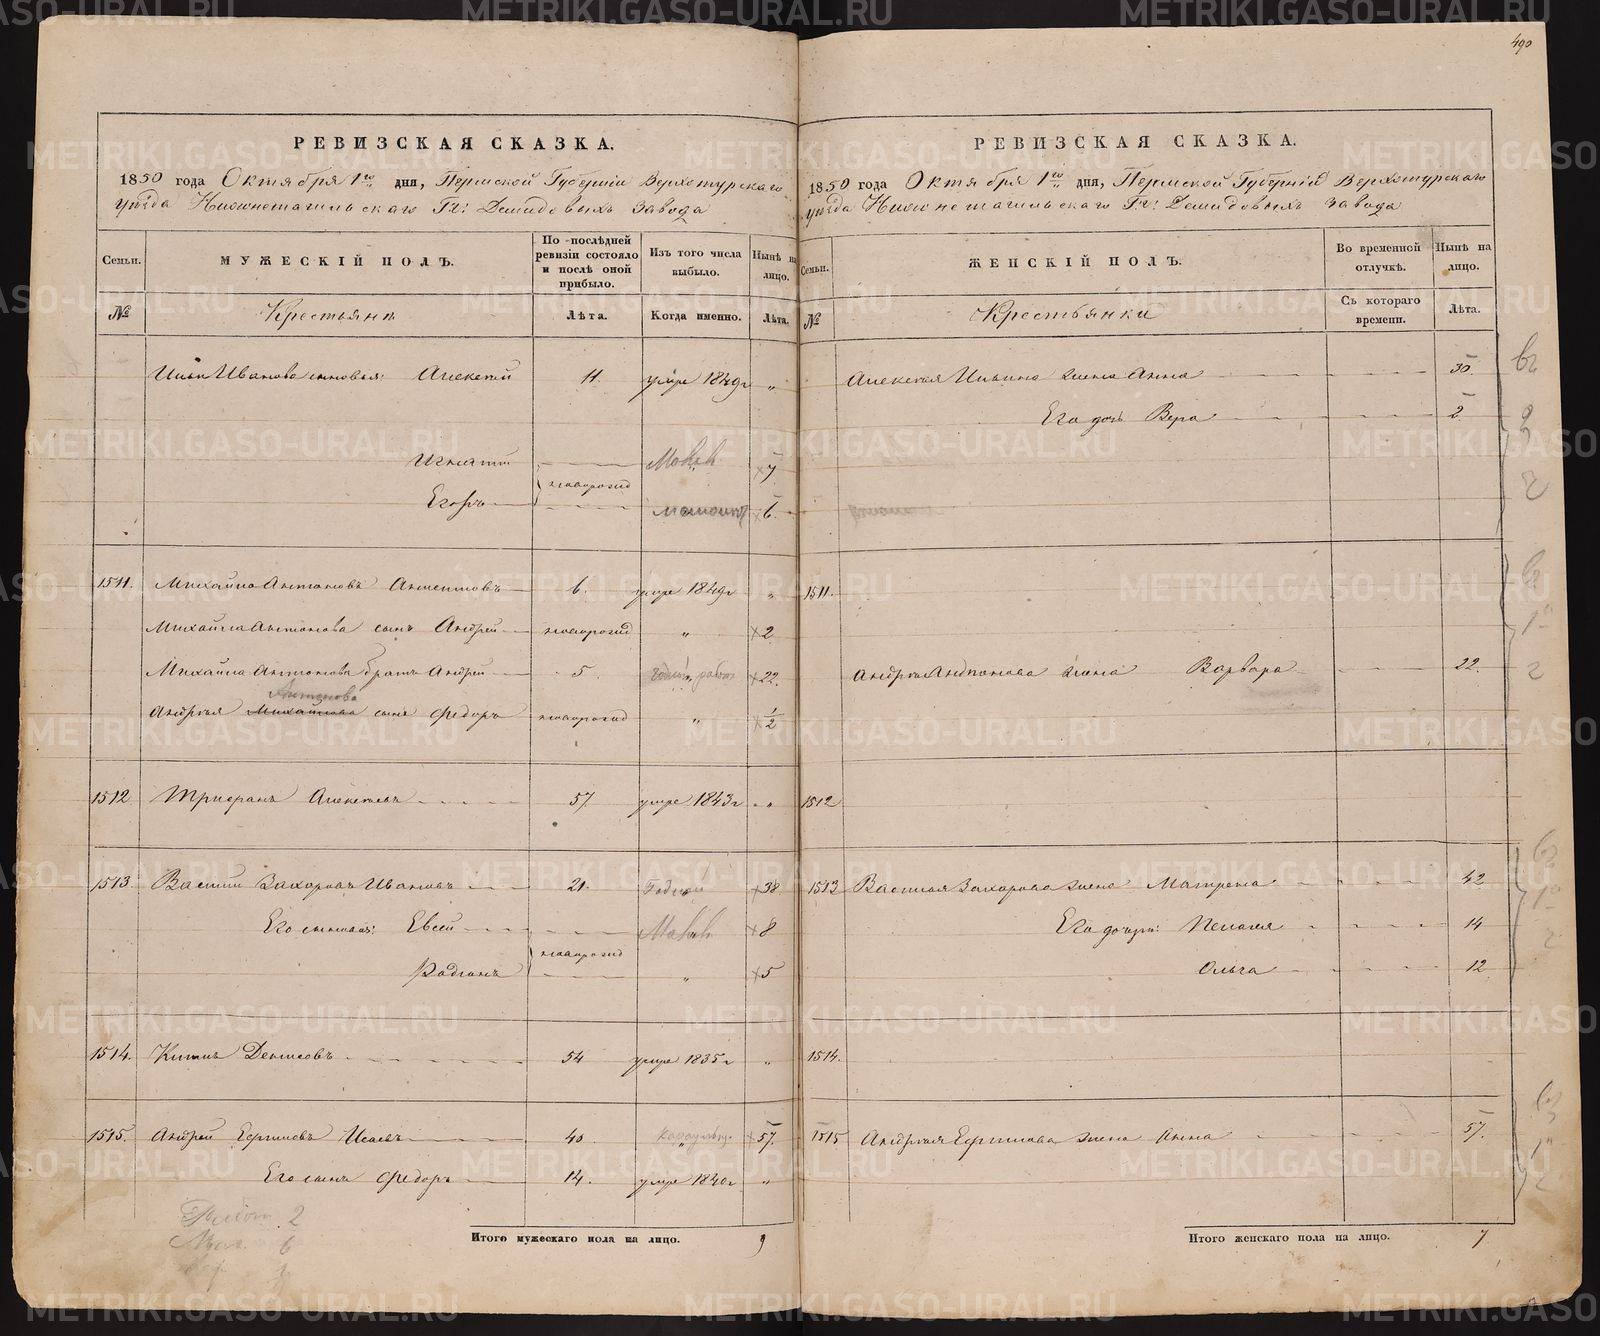 490
РЕВИЗСКАЯ СКАЗКА.
1850 года Октября 1го дня, Пермской Губерніи Верхотурскаго
уѣзда Нижнетагильскаго Гг: Демидовыхъ завода
Семьи.
МУЖЕСКІЙ ПОЛЪ.
По послѣдней ревизіи состояло и послѣ оной прибыло.
Изъ того числа выбыло.
Нынѣ на лицо.
№
Крестьяне
Лѣта.
Когда именно.
Лѣта.
Ильи Иванова сыновья: Алексѣй 11. умре 1849г „
Игнатій 7
новорожд
Егоръ 6.
1511. Михайло Антоновъ 6. умре 1849г „
Михайла Антонова сынъ Андрей новорожд „ 2
Михайла Антонова братъ Андрей 5. 22.
Антонова
Андрея Михайлова сынъ Федоръ новорожд „ 1/2
1512 Трифонъ Алексѣевъ 57. умре 1843г „
1513 Василій Захаровъ Ивановъ 21. Годной 38
Его сыновья: Евсей 8
новорожд
Родіонъ „ 5
1514. Денисовъ 54 умре 1835г „
1515. Андрей Исаевъ 40. 57.
Его сынъ Федоръ 14. умре 1840г „
Итого мужескаго пола на лицо. 9
2
6
РЕВИЗСКАЯ СКАЗКА.
1850 года Октября 1го дня, Пермской Губерніи Верхотурскаго
уѣзда Нижнетагильскаго Гг: Демидовыхъ завода
Семьи.
ЖЕНСКІЙ ПОЛЪ.
Во временной отлучкѣ.
Нынѣ на лицо.
№
Крестьянки
Съ котораго времени.
Лѣта.
Алексѣя Ильина жена Анна 30.
Его дочь Вера 2
1511.
Андрея Антонова жена Варвара 22.
1512
1513 Василья Захарова жена Матрена 42
Его дочери: Пелагея 14
Ольга 12
1514.
1515 Андрея жена Анна 57.
Итого женскаго пола на лицо. 7
METRIKI.GASO-URAL.RU